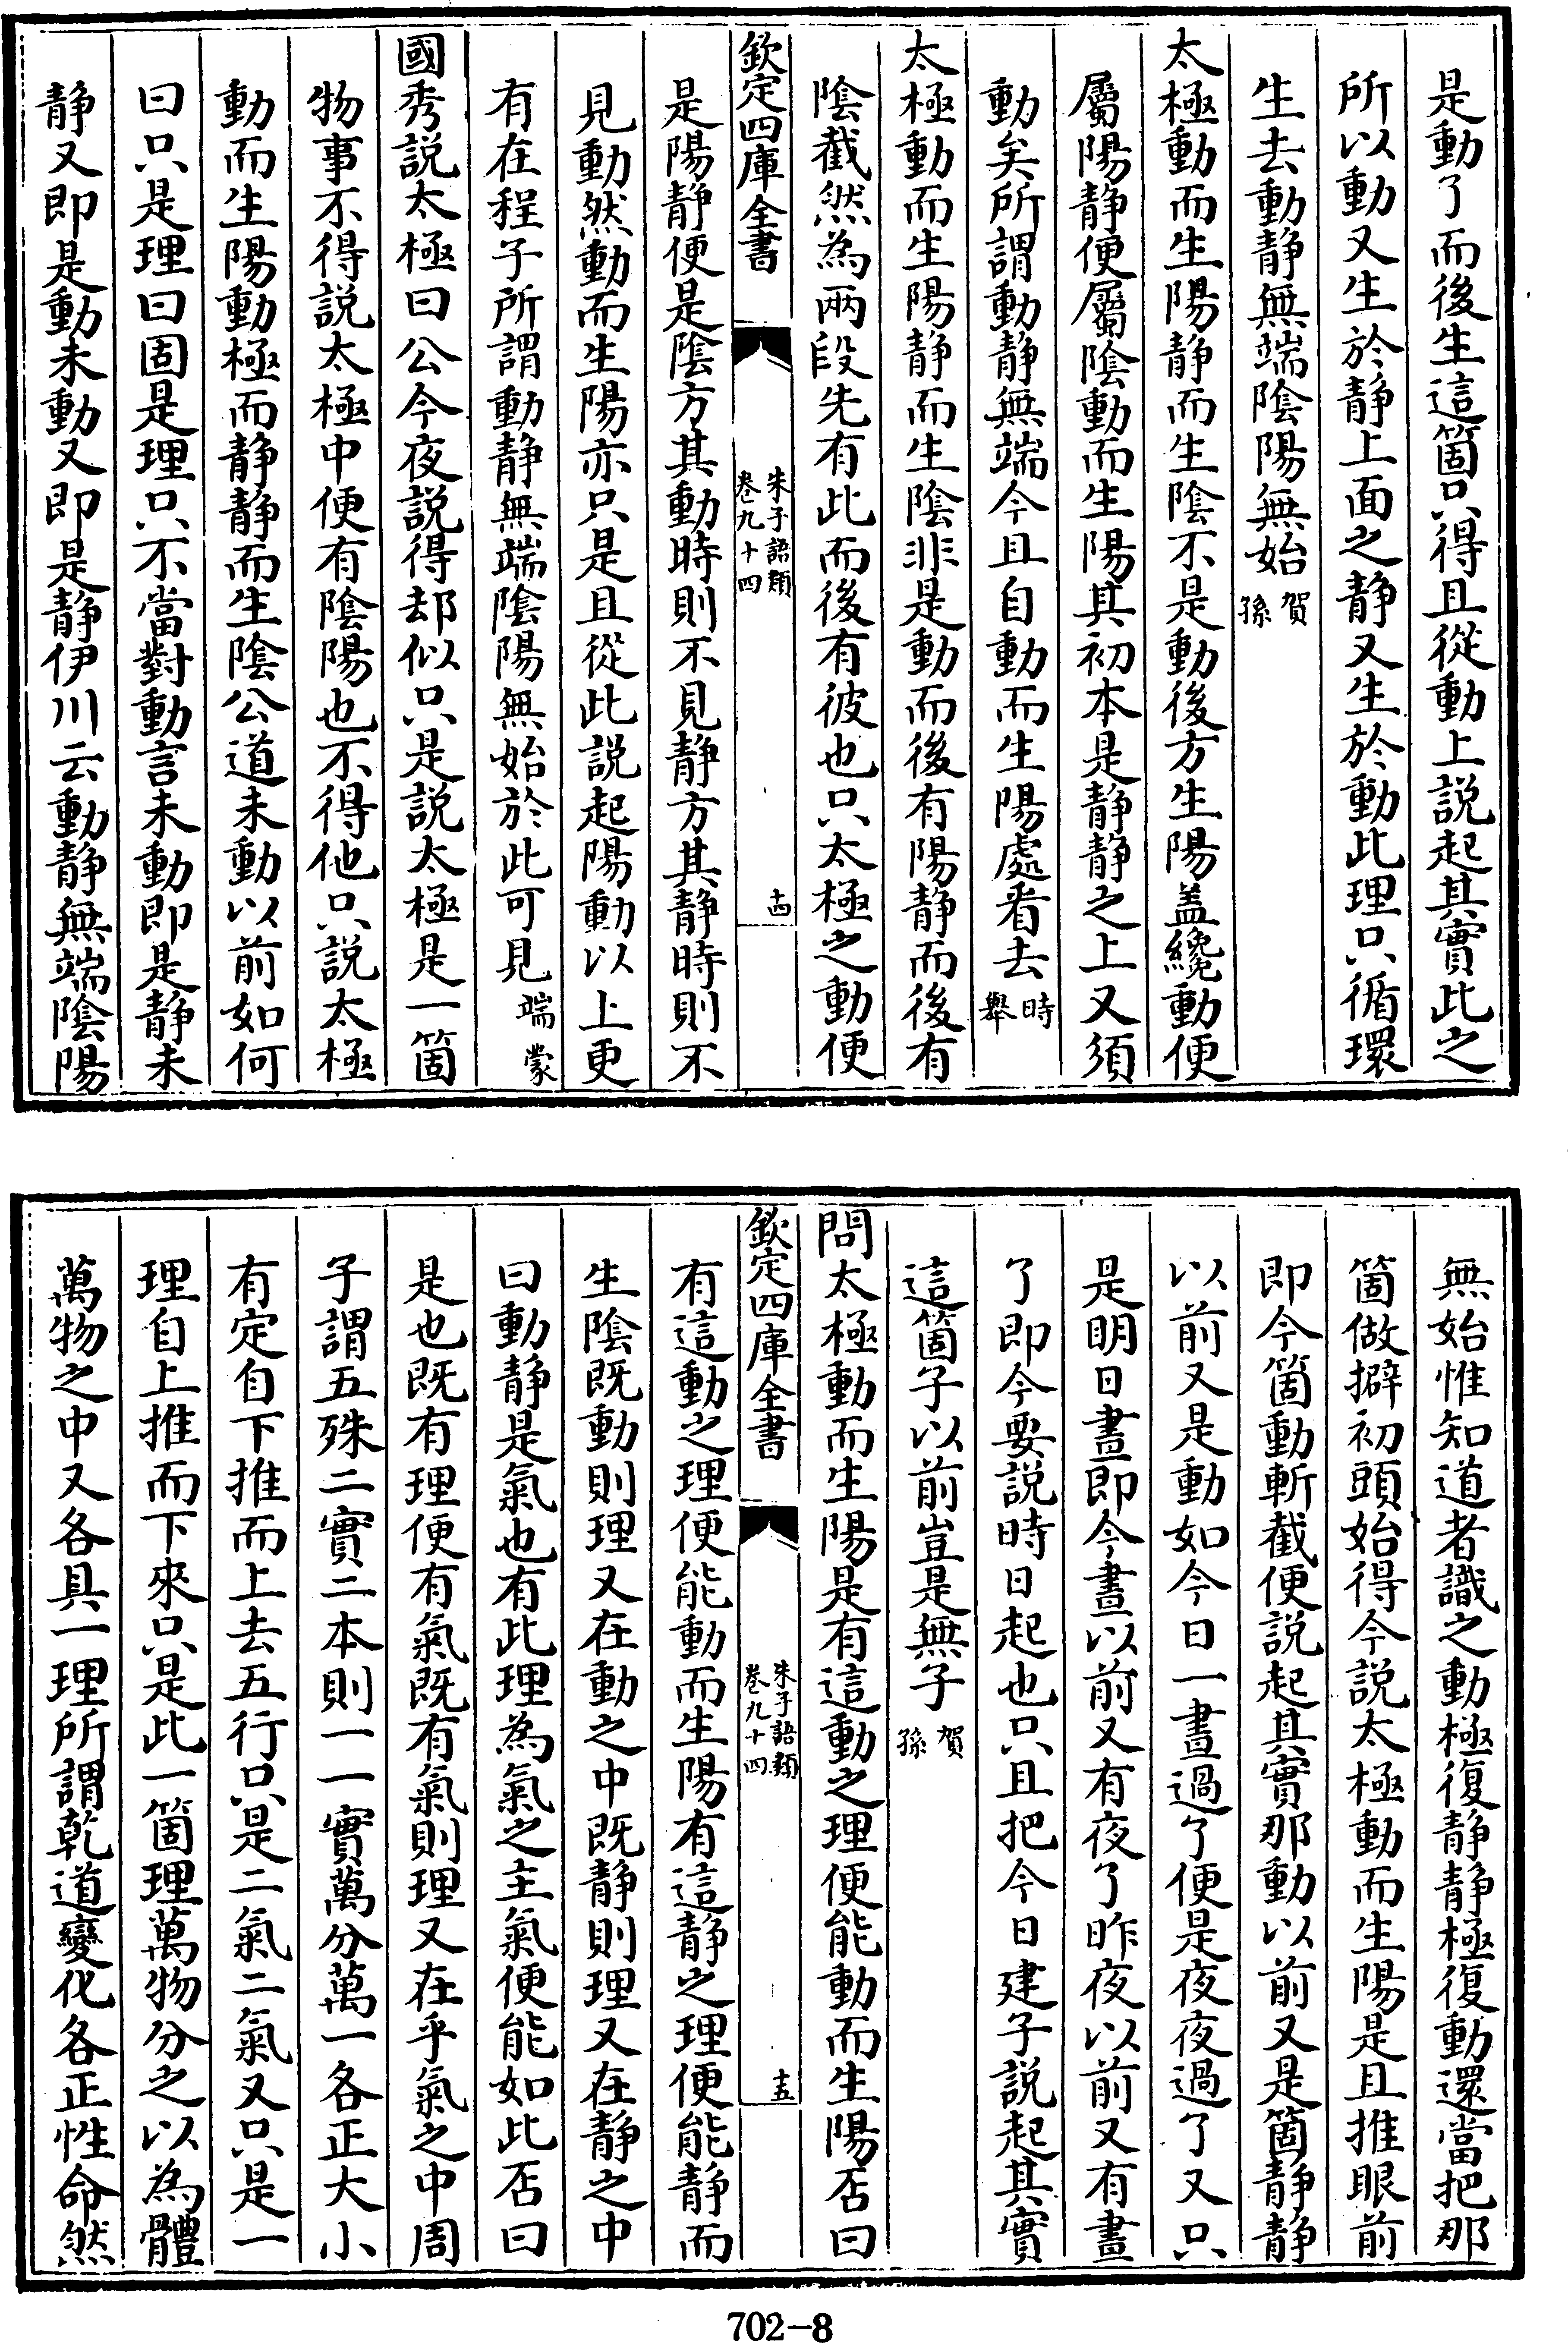 是動了而後生這箇只得且從動上說起其實此之
所以動又生於静上面之静又生於動此理只循環
生去動静無端陰陽無始賀孫
太極動而生陽静而生陰不是動後方生陽盖纔動便
屬陽静便屬陰動而生陽其初本是静静之上又須
動矣所謂動静無端今且自動而生陽處看去時舉
太極動而生陽静而生陰非是動而後有陽静而後有
陰截然為兩段先有此而後有彼也只太極之動便
欽定四庫全書
朱子語類
卷九十四
十四
是陽静便是陰方其動時則不見静方其静時則不
見動然動而生陽亦只是且從此說起陽動以上更
有在程子所謂動静無端陰陽無始於此可見端蒙
國秀說太極曰公今夜說得却似只是說太極是一箇
物事不得說太極中便有陰陽也不得他只說太極
動而生陽動極而静静而生陰公道未動以前如何
曰只是理曰固是理只不當對動言未動即是静未
静又即是動未動又即是静伊川云動静無端陰陽
無始惟知道者識之動極復静静極復動還當把那
箇做擗初頭始得今說太極動而生陽是且推眼前
即今箇動斬截便說起其實那動以前又是箇静静
以前又是動如今日一晝過了便是夜夜過了又只
是明日晝即今晝以前又有夜了昨夜以前又有晝
了即今要說時日起也只且把今日建子說起其實
這箇子以前豈是無子賀孫
問太極動而生陽是有這動之理便能動而生陽否曰
欽定四庫全書
朱子語類
卷九十四
十五
有這動之理便能動而生陽有這静之理便能静而
生陰既動則理又在動之中既静則理又在静之中
曰動静是氣也有此理為氣之主氣便能如此否曰
是也既有理便有氣既有氣則理又在乎氣之中周
子謂五殊二實二本則一一實萬分萬一各正大小
有定自下推而上去五行只是二氣二氣又只是一
理自上推而下來只是此一箇理萬物分之以為體
萬物之中又各具一理所謂乾道變化各正性命然
702-8